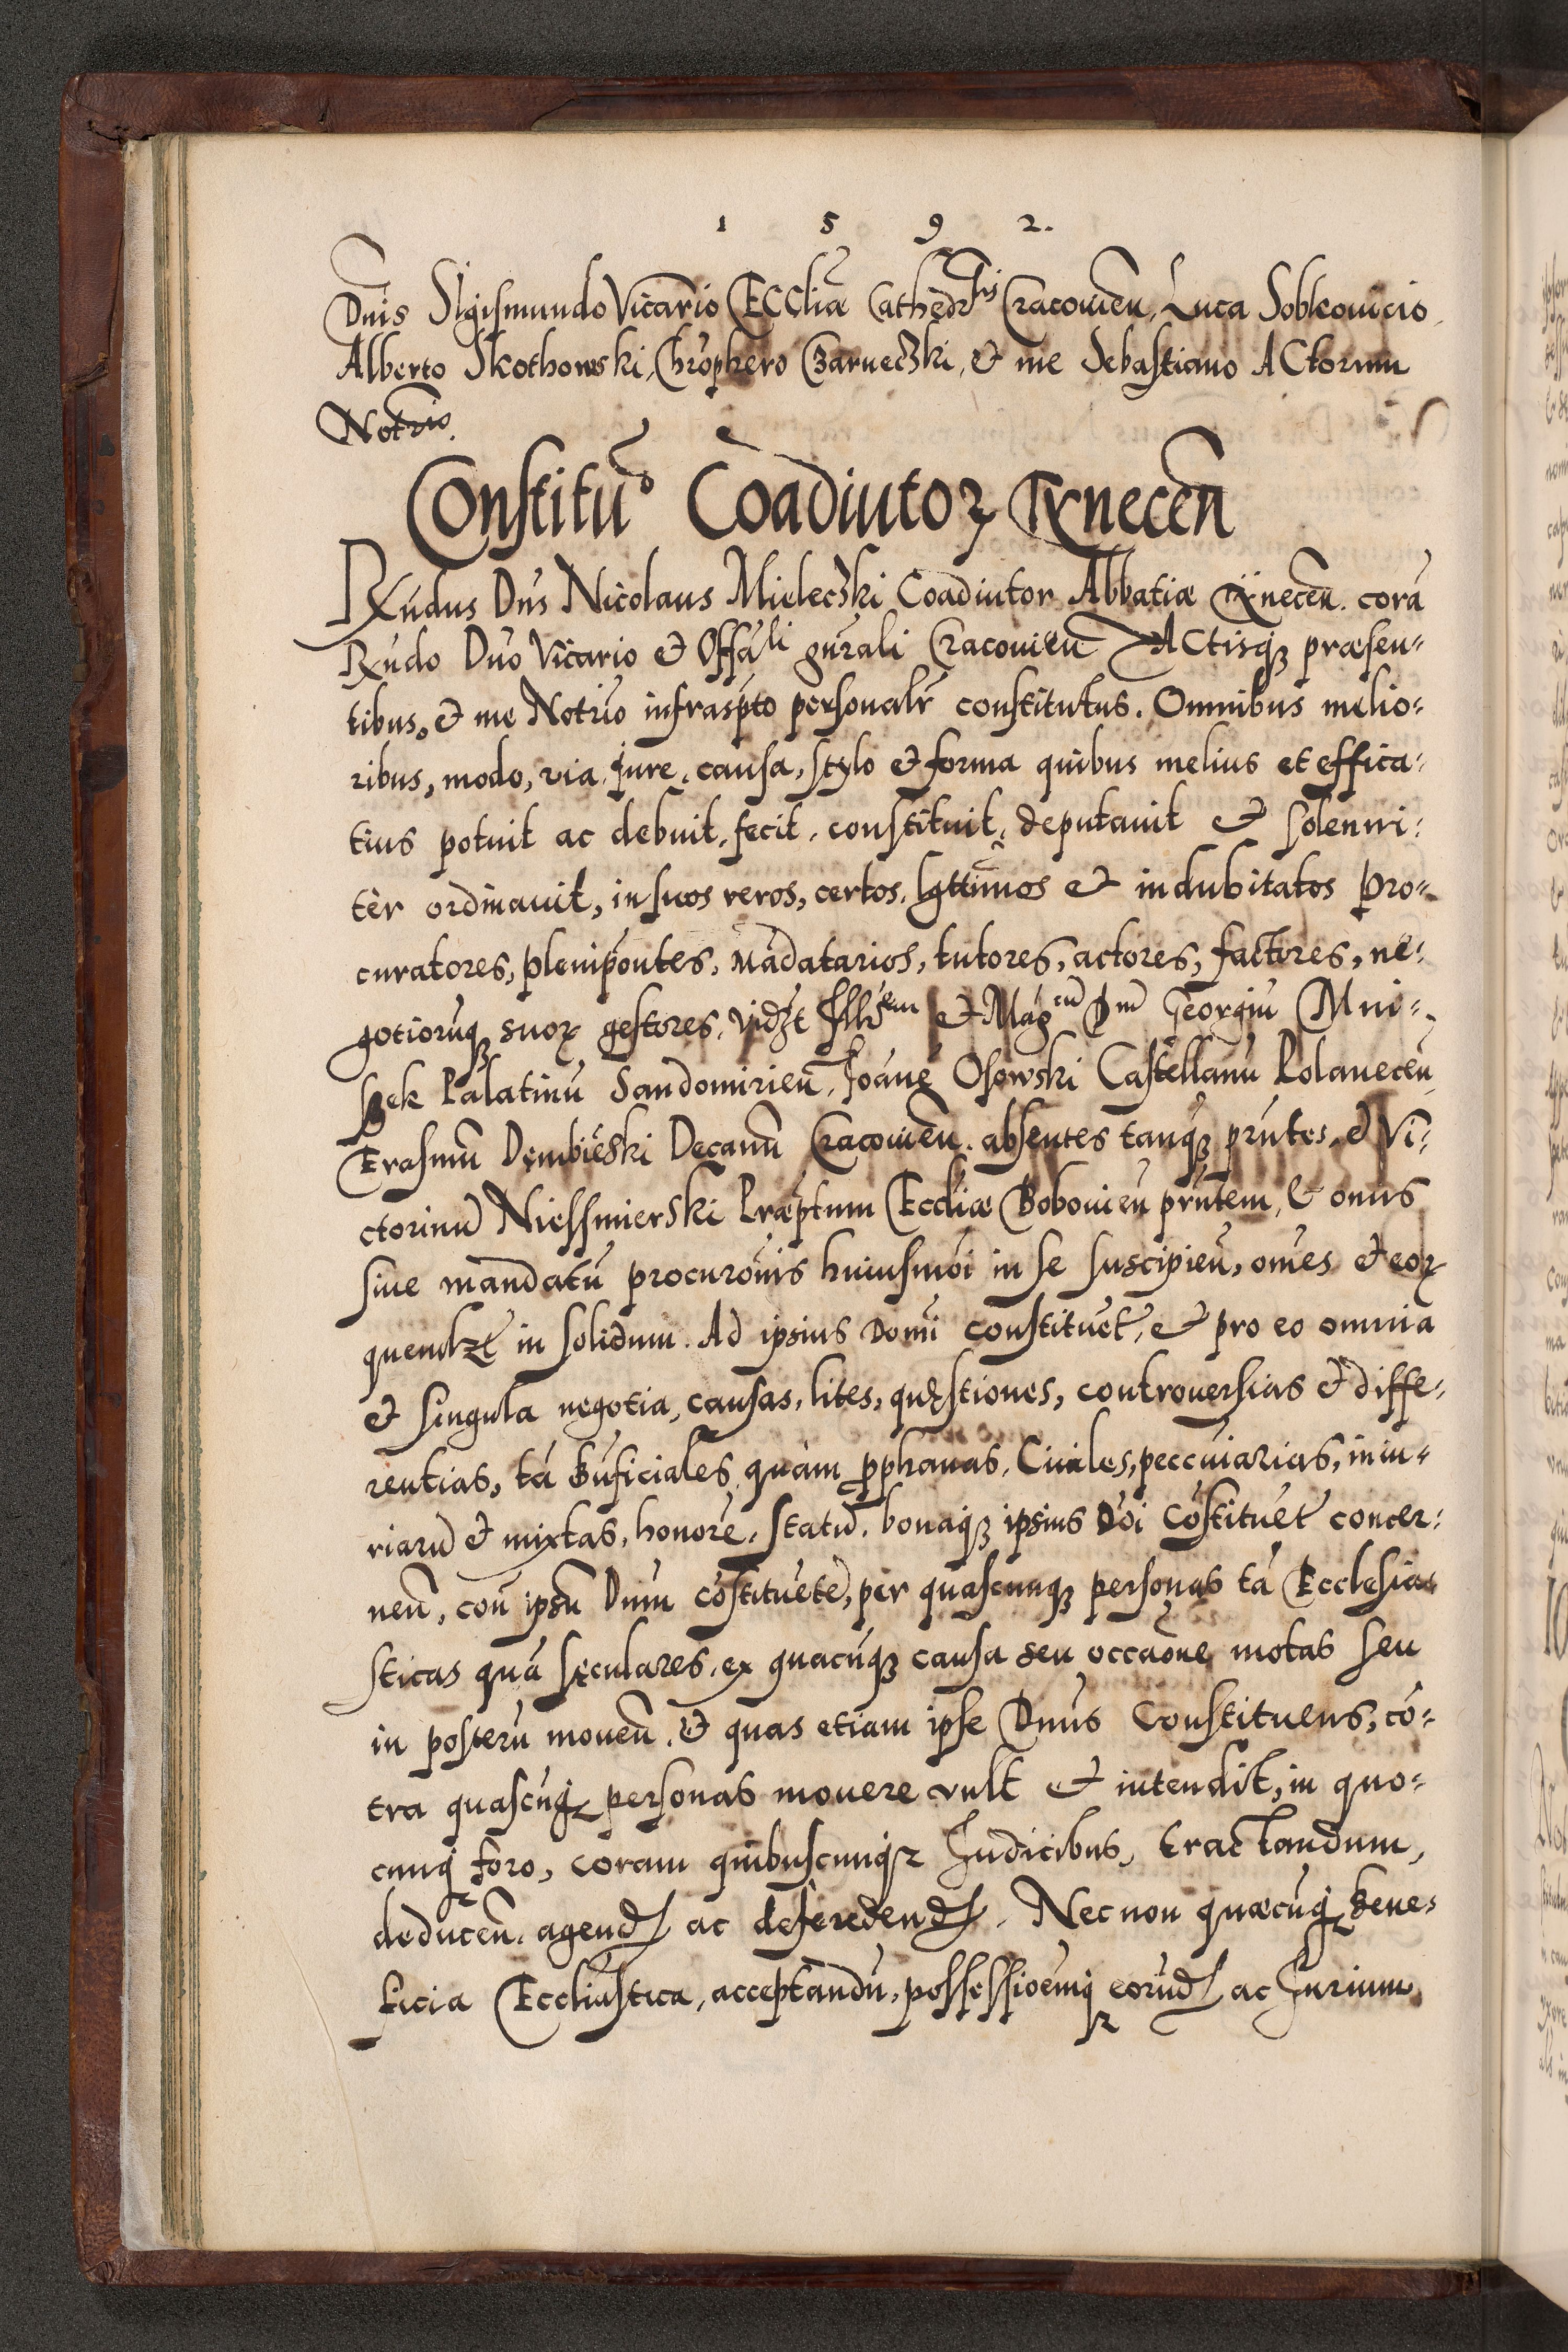 1 5 9 2.
Dnis Sigismundo Vicario Eccliæ Cathedrlis Cracovien, Luca Sobkovicio
Alberto Skothowski, Chrophero Czarneczki, & me Sebastiano Actorum
Notrio.
Constitu° Coadiutor Tynecen
Rẃndus Dns Nicolaus Mieleczki Coadiutor Abbatiæ Tÿnecen. corā
Rndo Dno Vicario & Offāli gnrali Cracovien Actisq3 præsen-
tibus, & me Notrio infrasp̄to personalr̄ constitutus. Omnibus melio-
ribus, modo, via, jure, causa, stylo & forma quibus melius et effica-
tius potuit ac debuit, fecit, constituit, deputavit & solenni-
tèr ordinavit, in suos veros, certos, lgttimos & indubitatos pro-
curatores, plenipōntes, mādatarios, tutores, actores, factores, ne-
gotiorūq3 suoꝝ gestores, vidzt Illrem & Mágcū Dnū Georgiū Mni-
szek Palatinū Sandomirien, Joānē Osowski Castellanū Polanecen
Erasmū Dembiēski Decanū Cracovien. absentes tanq3 prntes, & Vi-
ctorinū Niessmierski Præptum Eccliæ Bobovien prntem, & onus
sive mandatū procurōnis huiusmōi in se suscipien, ōmes & eoꝝ
quemlzt in solidum. Ad ipsius Domī constituēt, & pro eo omnia
& singula negotia, causas, lites, quęstiones, controversias & diffe-
rentias, tā Bnficiales quàm ꝓphanas, Civiles, peccuiarias, iniu-
riarū & mixtas, honorē, statū, bonaq3 ipsius Dōi Cōstituēt concer-
nen, con ipsū Dnm cōstituētē, per quascunq3 personas tā Ecclesia-
sticas quā sęculares, ex quacūq3 causa seu occaōne motas seu
in posterū moven, & quas etiam ipse Dnus Constituens, cō-
tra quascūqꝫ personas movere vult & intendit, in quo-
cunqꝫ foro, coram quibuscunqꝫ Judicibus, tractandum,
deducen, agendꝭ ac deferēdendꝭ. Necnon quæcūqꝫ bene-
ficia Eccliastica, acceptandū, possessioēmqꝫ eorūdꝭ ac Jurium